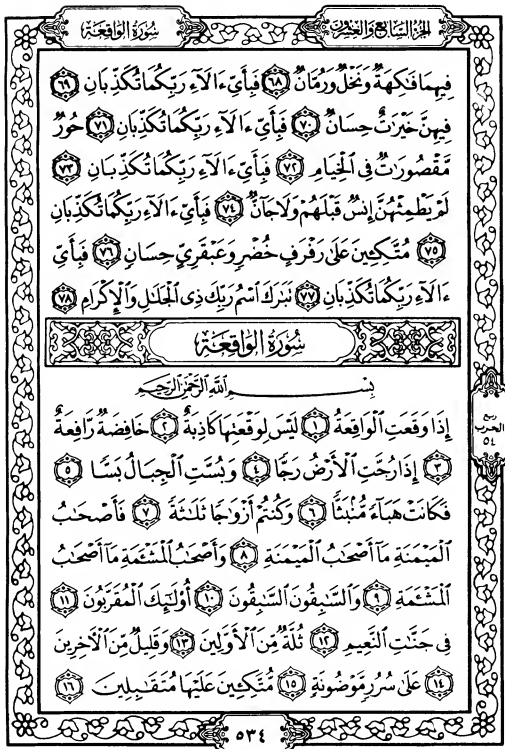 الجزء السابع والعشرون
سورة الواقعة
فِيهِمَا فَٰكِهَةٌ وَنَخْلٌ وَرُمَّانٌ ٦٨ فَبِأَىِّ ءَالَآءِ رَبِّكُمَا تُكَذِّبَانِ ٦٩
فِيهِنَّ خَيْرَٰتٌ حِسَانٌ ٧٠ فَبِأَىِّ ءَالَآءِ رَبِّكُمَا تُكَذِّبَانِ ٧١ حُورٌ
مَّقْصُورَٰتٌ فِى ٱلْخِيَامِ ٧٢ فَبِأَىِّ ءَالَآءِ رَبِّكُمَا تُكَذِّبَانِ ٧٣
لَمْ يَطْمِثْهُنَّ إِنسٌ قَبْلَهُمْ وَلَا جَآنٌّ ٧٤ فَبِأَىِّ ءَالَآءِ رَبِّكُمَا تُكَذِّبَانِ
٧٥ مُتَّكِـِٔينَ عَلَىٰ رَفْرَفٍ خُضْرٍ وَعَبْقَرِىٍّ حِسَانٍ ٧٦ فَبِأَىِّ
ءَالَآءِ رَبِّكُمَا تُكَذِّبَانِ ٧٧ تَبَٰرَكَ ٱسْمُ رَبِّكَ ذِى ٱلْجَلَٰلِ وَٱلْإِكْرَامِ ٧٨
سورة الواقعة
بِسْمِ ٱللَّهِ ٱلرَّحْمَٰنِ ٱلرَّحِيمِ
إِذَا وَقَعَتِ ٱلْوَاقِعَةُ ١ لَيْسَ لِوَقْعَتِهَا كَاذِبَةٌ ٢ خَافِضَةٌ رَّافِعَةٌ
٣ إِذَا رُجَّتِ ٱلْأَرْضُ رَجًّا ٤ وَبُسَّتِ ٱلْجِبَالُ بَسًّا ٥
فَكَانَتْ هَبَآءً مُّنۢبَثًّا ٦ وَكُنتُمْ أَزْوَٰجًا ثَلَٰثَةً ٧ فَأَصْحَٰبُ
ٱلْمَيْمَنَةِ مَآ أَصْحَٰبُ ٱلْمَيْمَنَةِ ٨ وَأَصْحَٰبُ ٱلْمَشْـَٔمَةِ مَآ أَصْحَٰبُ
ٱلْمَشْـَٔمَةِ ٩ وَٱلسَّٰبِقُونَ ٱلسَّٰبِقُونَ ١٠ أُو۟لَٰٓئِكَ ٱلْمُقَرَّبُونَ ١١
فِى جَنَّٰتِ ٱلنَّعِيمِ ١٢ ثُلَّةٌ مِّنَ ٱلْأَوَّلِينَ ١٣ وَقَلِيلٌ مِّنَ ٱلْـَٔاخِرِينَ
١٤ عَلَىٰ سُرُرٍ مَّوْضُونَةٍ ١٥ مُّتَّكِـِٔينَ عَلَيْهَا مُتَقَٰبِلِينَ ١٦
ربع
الحزب
٥٤
٥٣٤